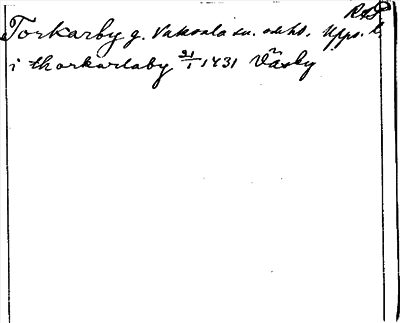 RAP
Torkarby g. Vaksala sn. o. hd. Upps. l.
i thorkarlaby 21/1 1431 Väsby